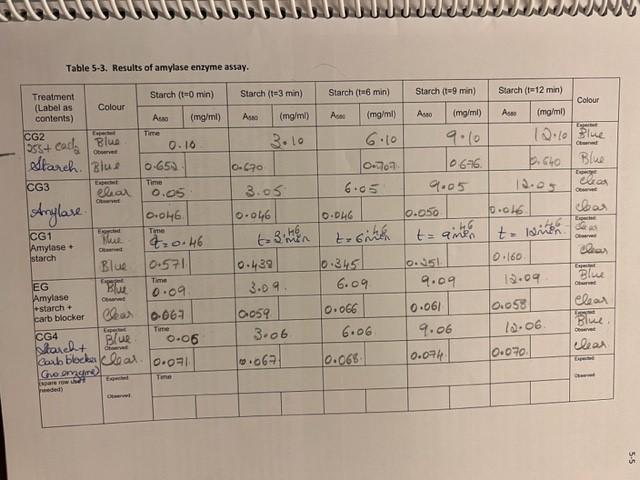 Table 5-3. Results of amylase enzyme assay.
Treatment (Label as contents) Colour Starch (t=0 min) Starch (t=3 min) Starch (t=6 min) Starch (t=9 min) Starch (t=12 min) Colour
A580 (mg/ml) A580 (mg/ml) A580 (mg/ml) A580 (mg/ml) A580 (mg/ml)
CG2 Expected: Blue Time 0.10 3.10 6.10 9.10 12.10 Expected: Blue
Starch. Observed: Blue 0.652 0.670 0.707 0.676 0.640 Observed: Blue
CG3 Expected: Clear Time 0.05 3.05 6.05 9.05 12.05 Expected: Clear
Amylase Observed: 0.046 0.046 0.046 0.050 0.046 Observed: Clear
CG1 Expected: Blue Time t=0.46 t= 6 min .46 t= 9 min .46 t= 12 min .46 Expected: Clear
Amylase + starch Observed: Blue 0.571 0.438 0.345 0.251 0.160 Observed: Clear
EG Expected: Blue Time 0.09 3.09 6.09 9.09 12.09 Expected: Blue
Amylase +starch + carb blocker Observed: Clear 0.067 0.059 0.066 0.061 0.058 Observed: Clear
CG4 Expected: Blue Time 0.06 3.06 6.06 9.06 12.06 Expected: Blue
Starch + Carb blocker (no enzyme) Observed: Clear. 0.071 0.067 0.068 0.074 0.070 Observed: Clear
(spare row needed) Expected: Time Expected:
Observed: Observed:
5-5